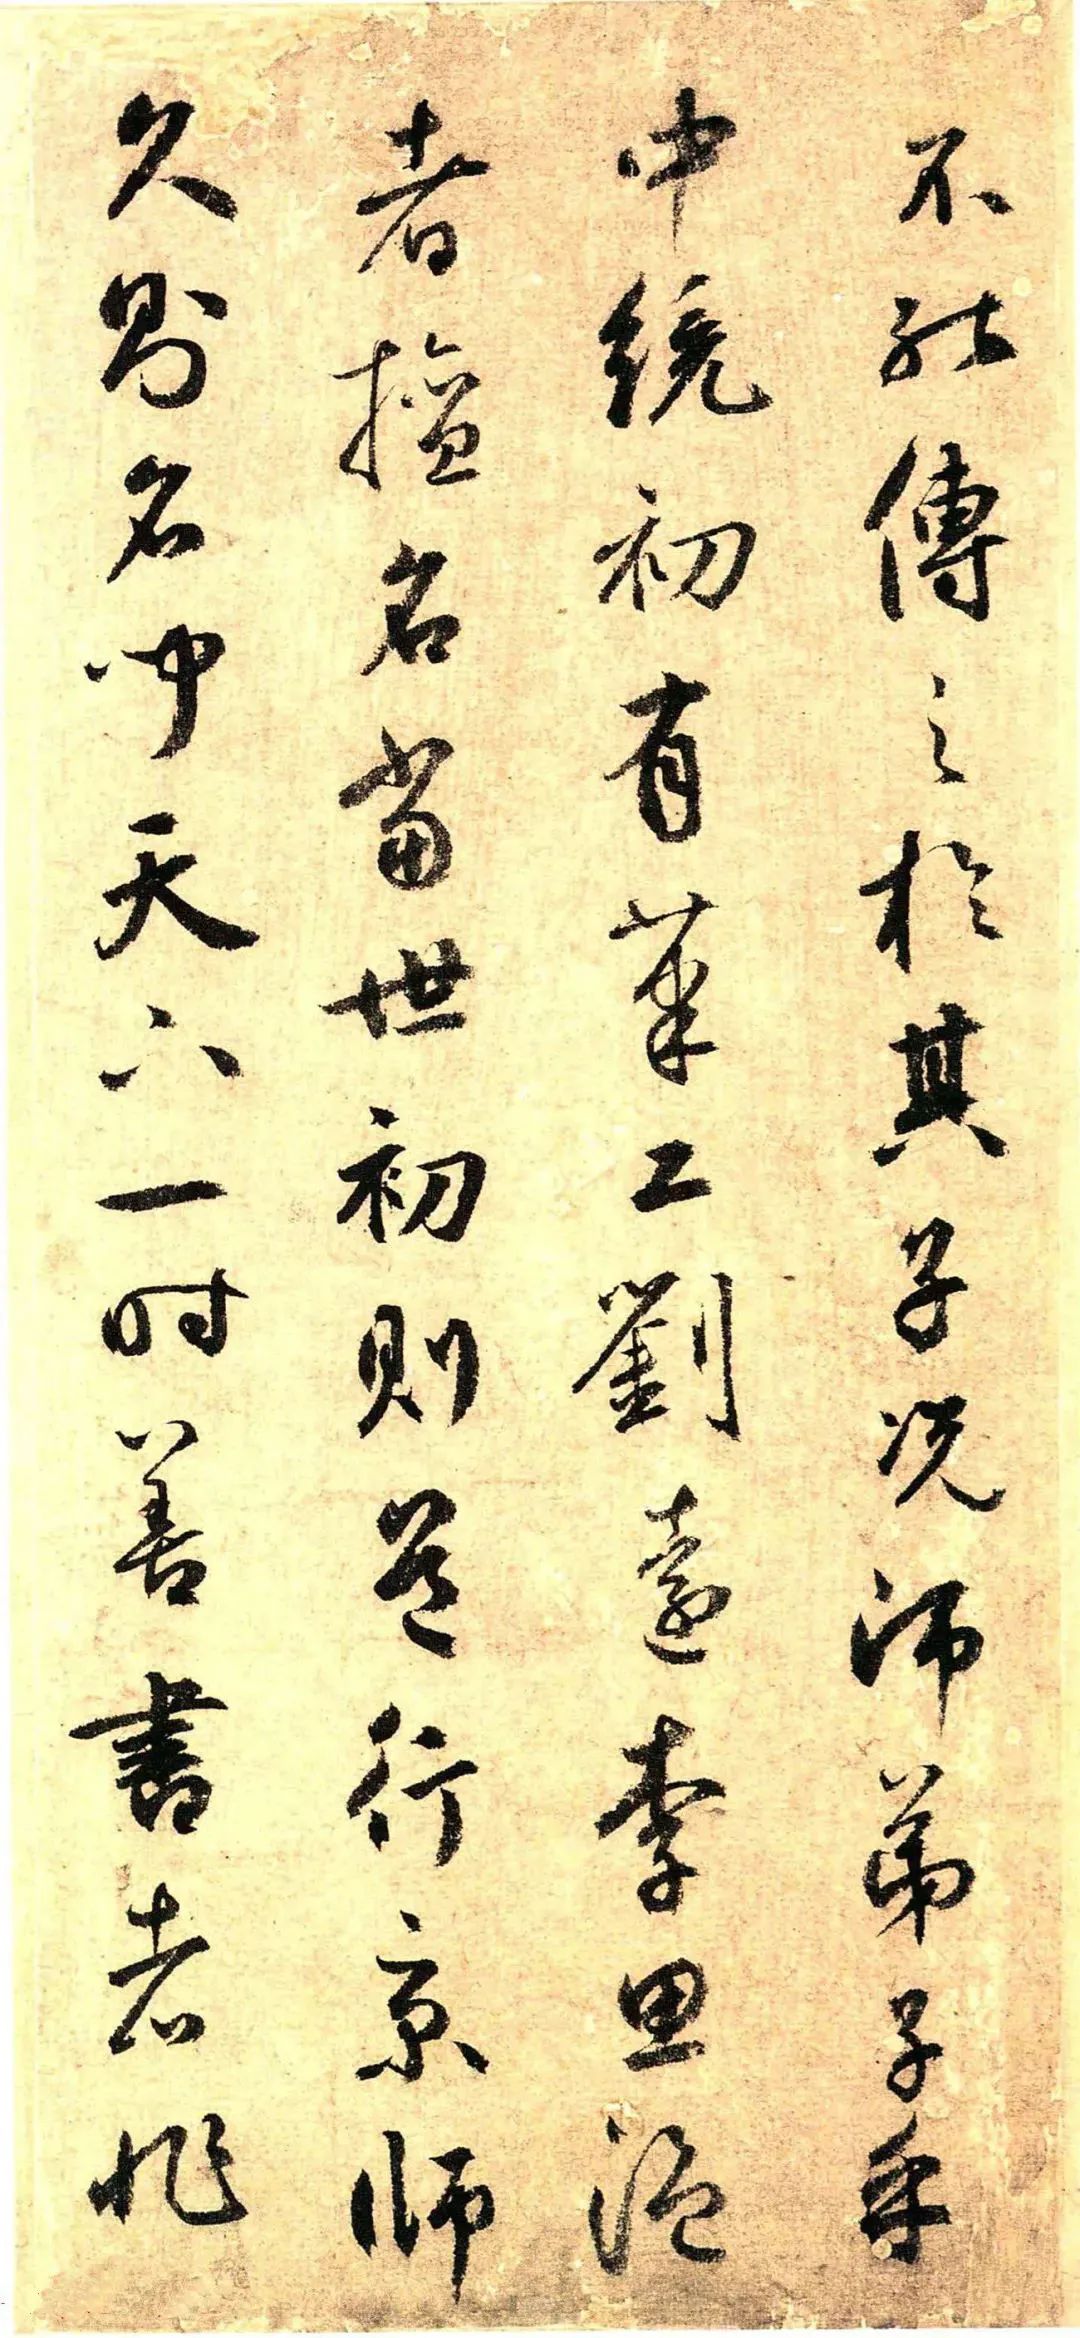 不能傳之於其子况師弟子乎
中統初有筆工劉遠李思温
者擅名當世初則邑行京師
久則名聞天下一時善書者非